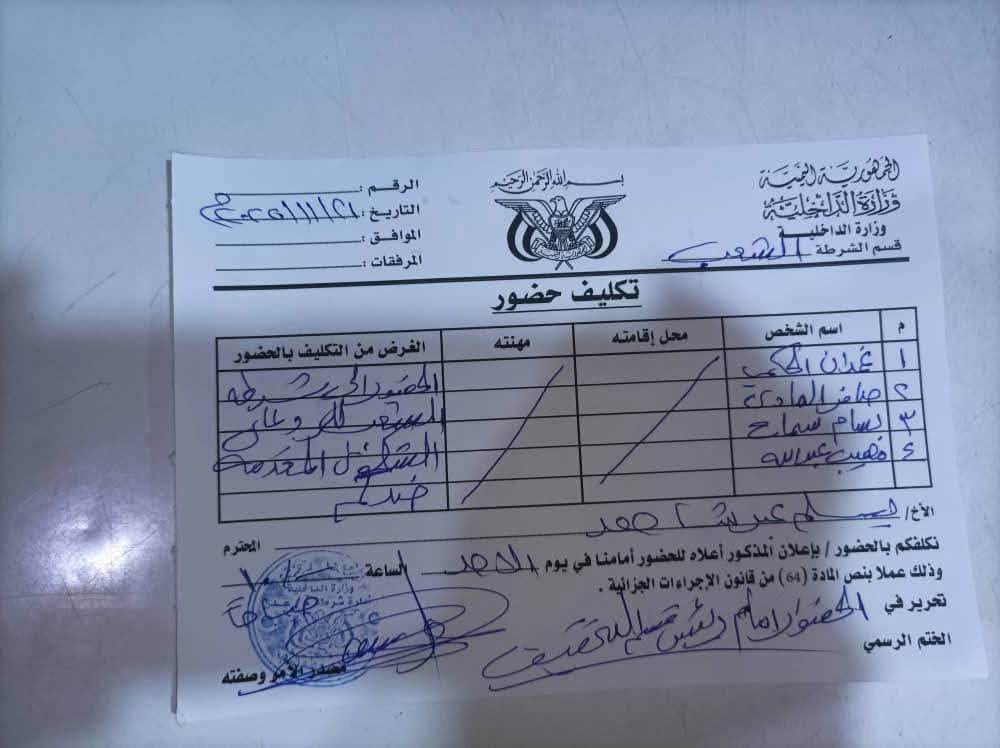 الجمهورية اليمنية
وزارة الداخلية
وزارة الداخلية
قسم الشرطة الشعب
بسم الله الرحمن الرحيم
الرقم :
التاريخ :
الموافق :
المرفقات :
تكليف حضور
م اسم الشخص محل إقامته مهنته الغرض من التكليف بالحضور
١ غمدان الحضور إلى شرطة
٢ الشعب للرد على
٣ بسام سماح المقدمة
٤ عبدالله ضدكم
الأخ/ المحترم
نكلفكم بالحضور / بإعلان المذكور أعلاه للحضور أمامنا في يوم الاحد الساعة ١٠
وذلك عملا بنص المادة (64) من قانون الإجراءات الجزائية .
تحرير في صباحاً
الحضور امام رئيس قسم التحقيق
الختم الرسمي مصدر الأمر وصفته
وزارة الداخلية